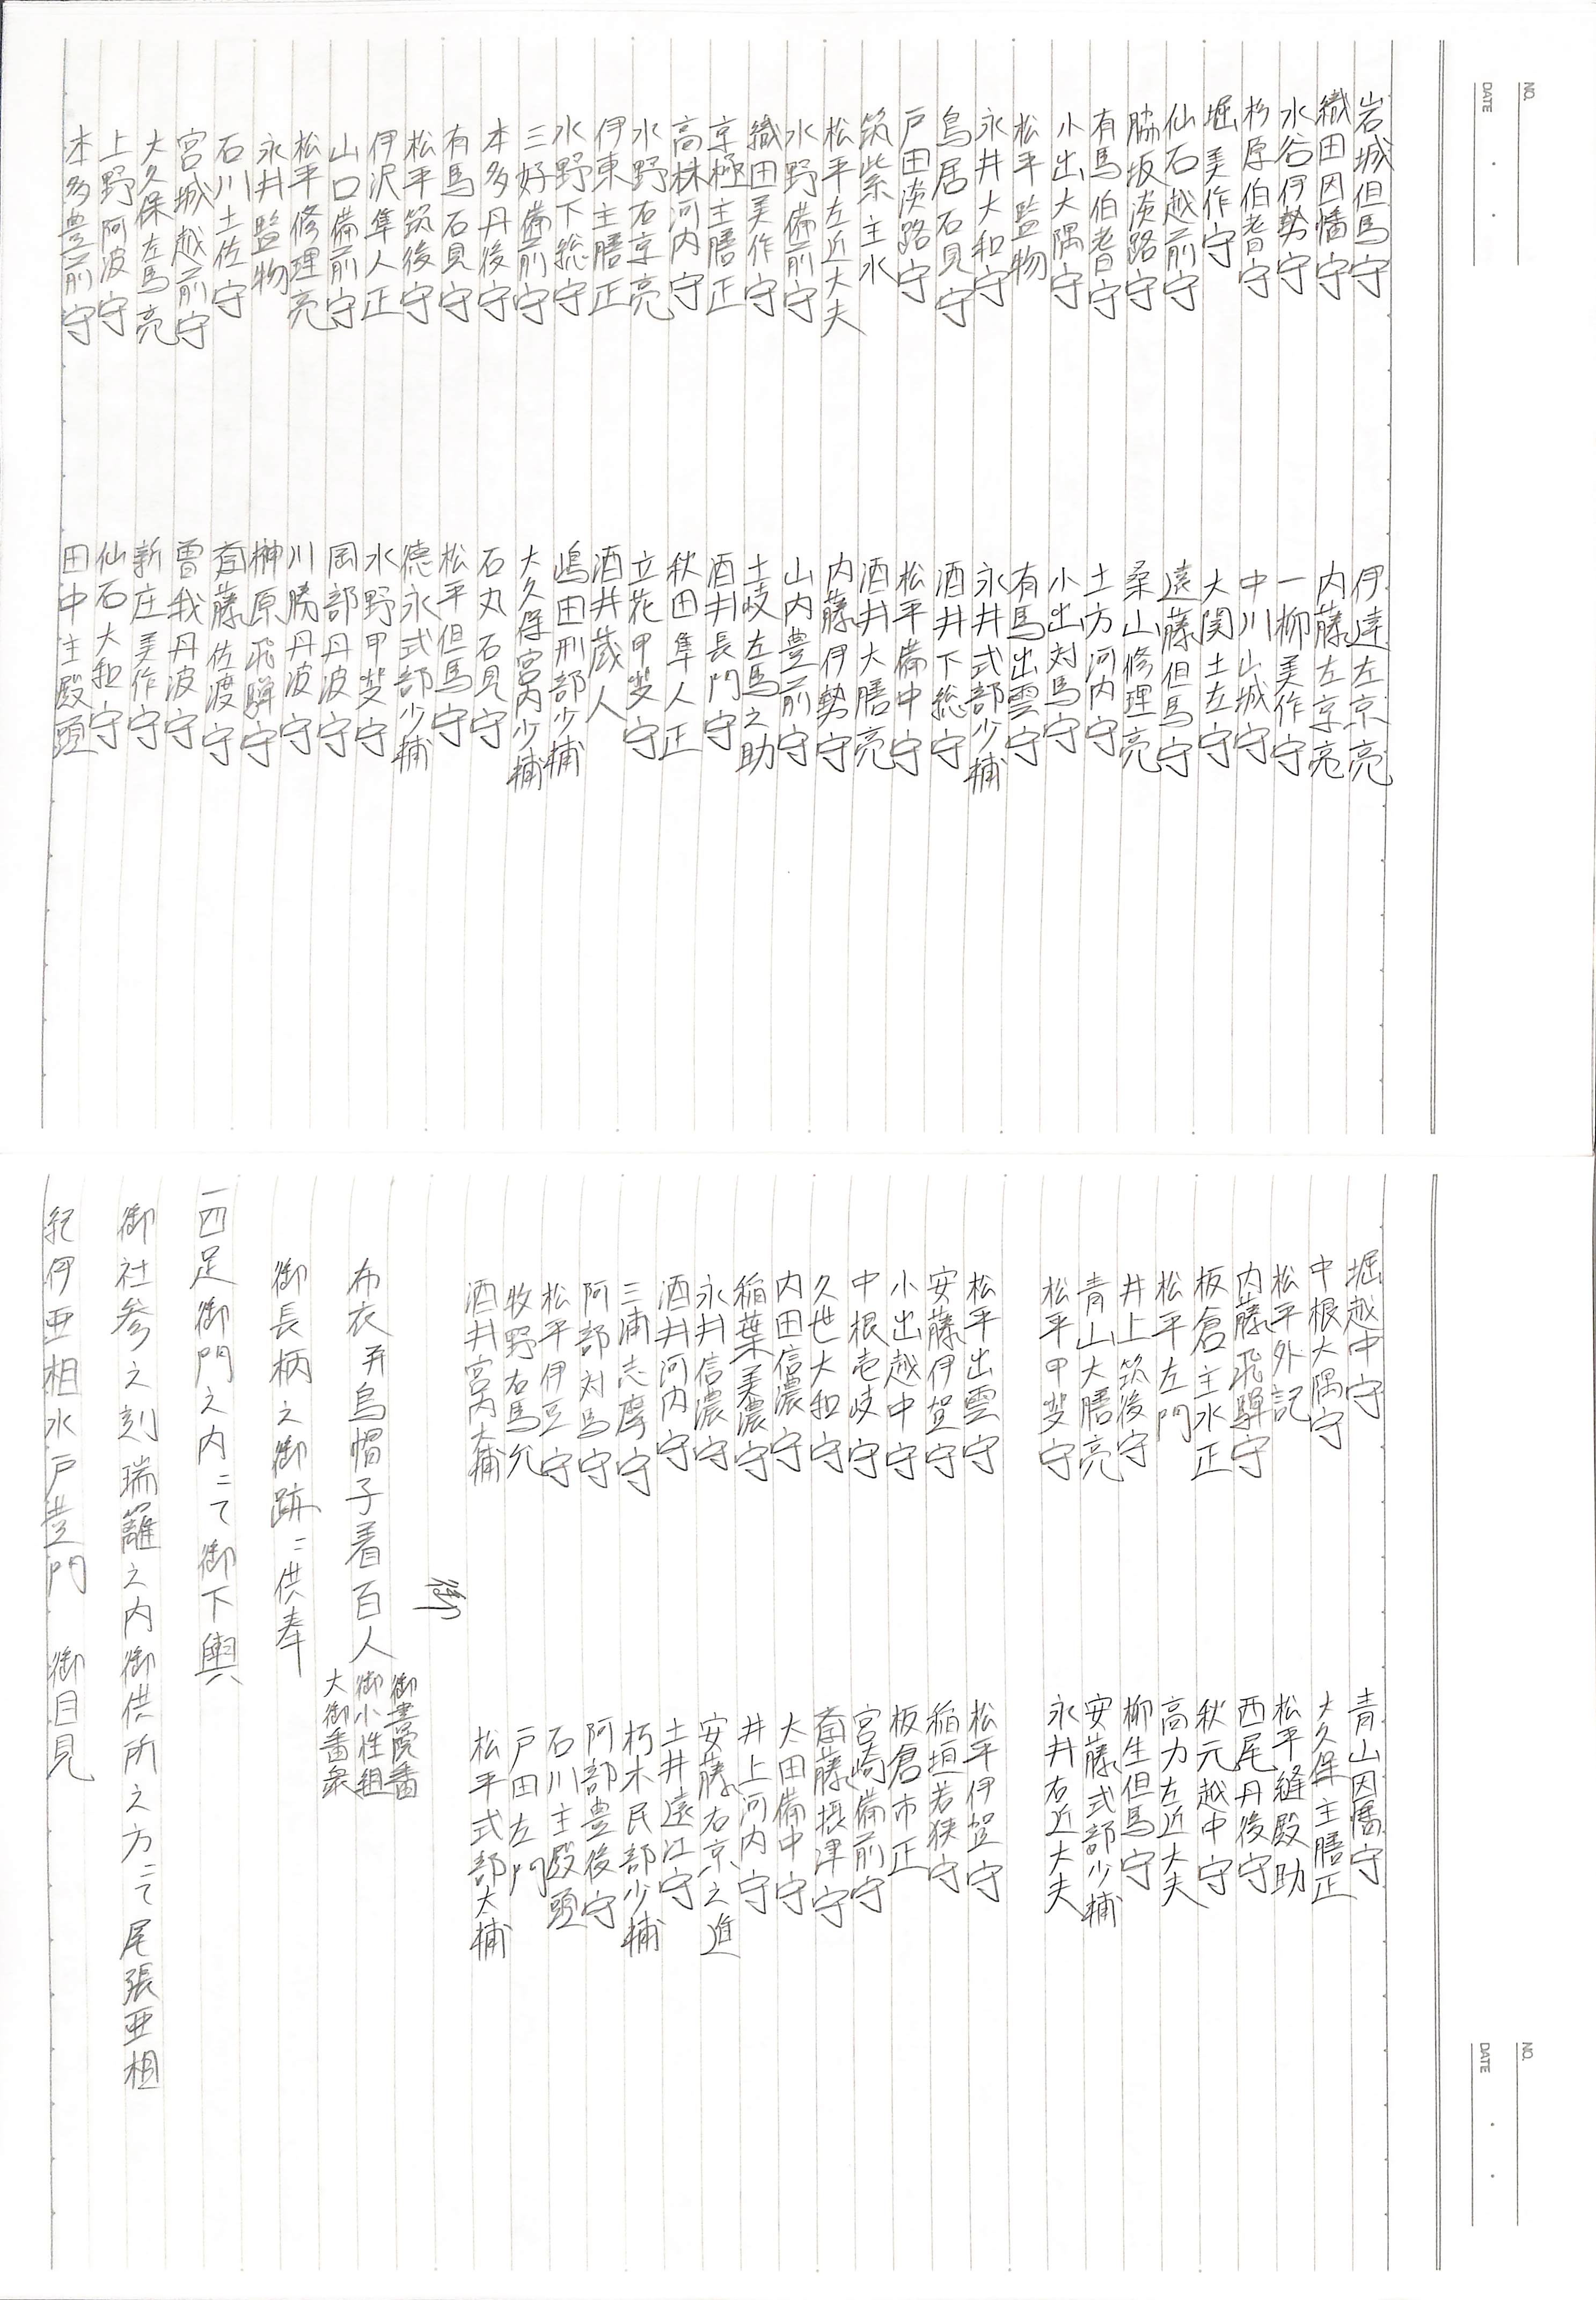 岩城但馬守　伊達左京亮
織田因幡守　内藤左京亮
水谷伊勢守　一柳美作守
杉原伯耆守　中川山城守
堀美作守　大関土左守
仙石越前守　遠藤但馬守
脇坂淡路守　桑山修理亮
有馬伯耆守　土方河内守
小出大隅守　小出対馬守
松平監物　有馬出雲守
永井大和守　永井式部少輔
鳥居石見守　酒井下総守
戸田淡路守　松平備中守
筑紫主水　酒井大膳亮
松平左近大夫　内藤伊勢守
水野備前守　山内豊前守
織田美作守　土岐左馬之助
京極主膳正　酒井長門守
高林河内守　秋田隼人正
水野右京亮　立花甲斐守
伊東主膳正　酒井蔵人
水野下総守　嶋田刑部少輔
三好備前守　大久保宮内少輔
本多丹後守　石丸石見守
有馬石見守　松平但馬守
松平筑後守　徳永式部少輔
伊沢隼人正　水野甲斐守
山口備前守　岡部丹波守
松平修理亮　川勝丹波守
永井監物　榊原飛騨守
石川土佐守　斎藤佐渡守
宮城越前守　曽我丹波守
大久保左馬亮　新庄美作守
上野阿波守　仙石大和守
本多豊前守　田中主殿頭
NO.
DATE
堀越中守　青山因幡守
中根大隅守　大久保主膳正
松平外記　松平縫殿助
内藤飛騨守　西尾丹後守
板倉主水正　秋元越中守
松平左門　高力左近大夫
井上筑後守　柳生但馬守
青山大膳亮　安藤式部少輔
松平甲斐守　永井右近大夫
松平出雲守　松平伊賀守
安藤伊賀守　稲垣若狭守
小出越中守　板倉市正
中根壱岐守　宮崎備前守
久世大和守　斎藤摂津守
内田信濃守　太田備中守
稲葉美濃守　井上河内守
永井信濃守　安藤右京之進
酒井河内守　土井遠江守
三浦志摩守　朽木民部少輔
阿部対馬守　阿部豊後守
松平伊豆守　石川主殿頭
牧野右馬允　戸田左門
酒井宮内大輔　松平式部大輔
御
布衣并烏帽子着百人
御書院番
御小性組
大御番衆
御長柄之御跡ニ供奉
一四足御門之内ニて御下輿
御社参之刻瑞籬之内御供所之方ニて尾張亜相
紀伊亜相水戸黄門　御目見
NO.
DATE